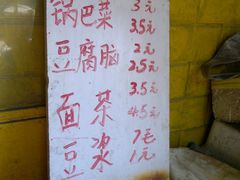 锅巴菜 3元
3.5元
豆腐脑 2元
2.5元
面茶 3.5元
4.5元
豆浆 7毛
1元